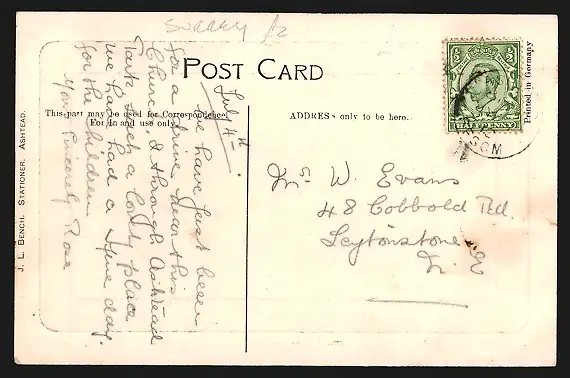 SURREY £2
POST CARD
This part may be used for Correspondence
For In and use only.
ADDRESS only to be here.
Printed in Germany
HALFPENNY
SOM
J. L. BENCH. STATIONER. ASHTEAD.
July 4th
We have just been
for a drive near this
Church, & through Ashtead
Park such a lovely place
we have had a fine day
for the children
Yours Sincerely Rose
Mrs W. Evans
48 Cobbold Rd.
Leytonstone